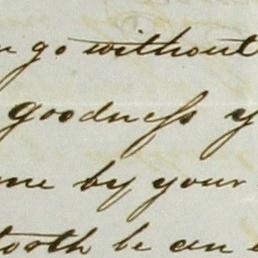 go without
goodness y
me by your
orth be an